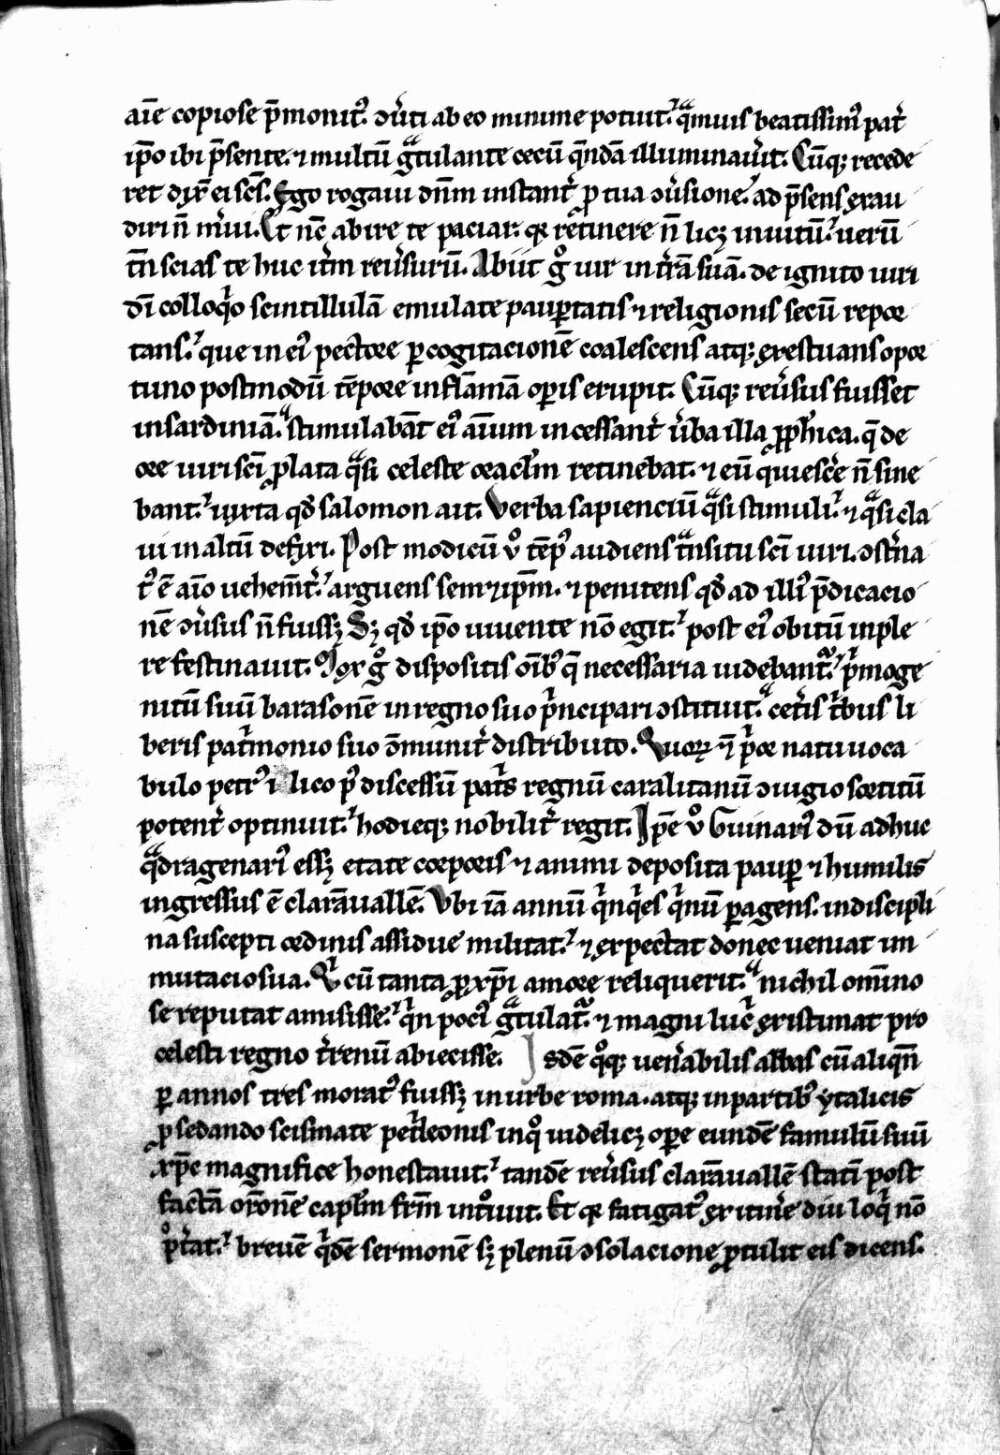 aīe copiose p̄monitꝰ. ↄ̓uti ab eo minime potuit. qᷓmuis beatissimꝰ pat̓
ip̄o ibi p̄sente. ⁊ multū gᷓtulante cecū qͣndā illuminau̓it. Cūqꝫ recede
ret dix̄ ei sc̄s. Ego rogaui dn̄m instant̓ ꝓ tua ↄu̓sione. ad p̄sens exau
diri n̄ m̓ui. Et nc̄ abire te paciar. qꝛ retinere n̄ licꝫ inuitū. uerū
tn̄ scias te huc it̓m reu̓surū. Abiit gͦ uir in t̓rā suā. de ignito uiri
dī colloqͥo scintillulā emulate paup̱tatis ⁊ religionis secū repor
tans. que in eiꝰ pectore ꝑ cogitacionē coalescens atqꝫ exestuans opor
tuno postmodū tēpore in flāmā op̱is erupit. Cūqꝫ reu̓sus fuisset
in sardiniā. stimulabāt eiꝰ aīum incessant̓ u̓ba illa ꝓph̓ica. q̄ de
ore uiri sc̄i ꝓlata qᷓsi celeste oraclm̄ retinebat. ⁊ eū quiesc̓e n̄ sine
bant. iuxta qd̓ salomon ait. Verba sapienciū qᷓsi stimuli. ⁊ qᷓsi cla
ui in altū defixi. Post modicū uͦ tēpꝰ audiens tͣnsitū sc̄i uiri. ↄst̓na
tꝰ ē aīo uehem̄t̓. arguens semetip̄m. ⁊ penitens qd̓ ad illiꝰ p̄dicacio
nē ↄu̓sus n̄ fuissꝫ Sꝫ qd̓ ip̄o uiuente nō egit. post eiꝰ obitū inple
re festinauit. Mox gͦ dispositis oībꝰ q̄ necessaria uidebantᷓ. pͥmoge
nitū suū barasonē in regno suo pͥncipari ↄstituit. cet̓is t̓bus li
beris pat̓monio suo ↄ̄munit̓ distributo. Quoꝝ ē pͥor natu uoca
bulo petrꝰ ilico pꝰ discessū pat̓s regnū caralitanū ↄiugio sortitū
potent̓ optinuit. hodieqꝫ nobilit̓ regit. Ip̄e uͦ Guinariꝰ dū adhuc
qᷓdragenariꝰ essꝫ etate corporis ⁊ animi deposita paup̱ ⁊ humilis
ingressus ē clarāuallē. Vbi iā annū qͥnqͥes qͥnū ꝑagens. in discipli
na suscepti ordinis assidue militat. ⁊ expectat donec ueniat im
mutacio sua. Qͥ cū tanta ꝓ xp̄i amore reliquerit. nichil omīno
se reputat amisisse. qͥn pociꝰ gᷓtulatᷓ. ⁊ magni luc̓ existimat pro
celesti regno t̓renū abiecisse. Isdē qͦqꝫ uen̓abilis abbas cū aliqn̄
ꝑ annos tres moratꝰ fuissꝫ in urbe roma. atqꝫ in partibꝰ ytalicis
ꝓ sedando scismate pet̓leonis in qͦ uidelicꝫ op̱e eundē famulū suū
xp̄c magnifice honestauit. tandē reu̓sus clarāuallē statī post
factā or̄onē caplm̄ fr̄m intͦiuit. Et qꝛ fatigatꝰ ex itin̓e diu loqͥ nō
pͦt̓at. breuē qͥdē sermonē sꝫ plenū ↄsolacione ꝓtulit eis dicens.